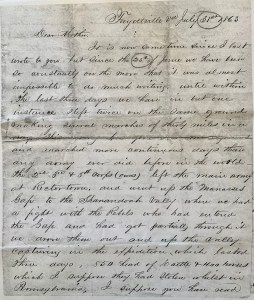 Fayettville Va July 31st /63
Dear Brother
It is now some time since I last
wrote to you but since the 25th of June we have been
so constantly on the move that it was almost
impossible to do much writing, until within
the last three days we have in but one
instance slept twice on the same ground
several marches of thirty miles in a
day
and marched more continuous days than
any army ever did before in the world
the 2nd 3rd & 5th Corps (ours) left the main army
at Rectortown, and went up the Manassas
Gap to the Shanandoah Valley where we had
a fight with the Rebels who had entered
the Gap and had got partially through it
we drove them out and up the Valley
Capturing in the which lasted
three days, 250 head of Cattle & horses
which I suppose they had stolen whilst in
Pennsylvania, I suppose you have read